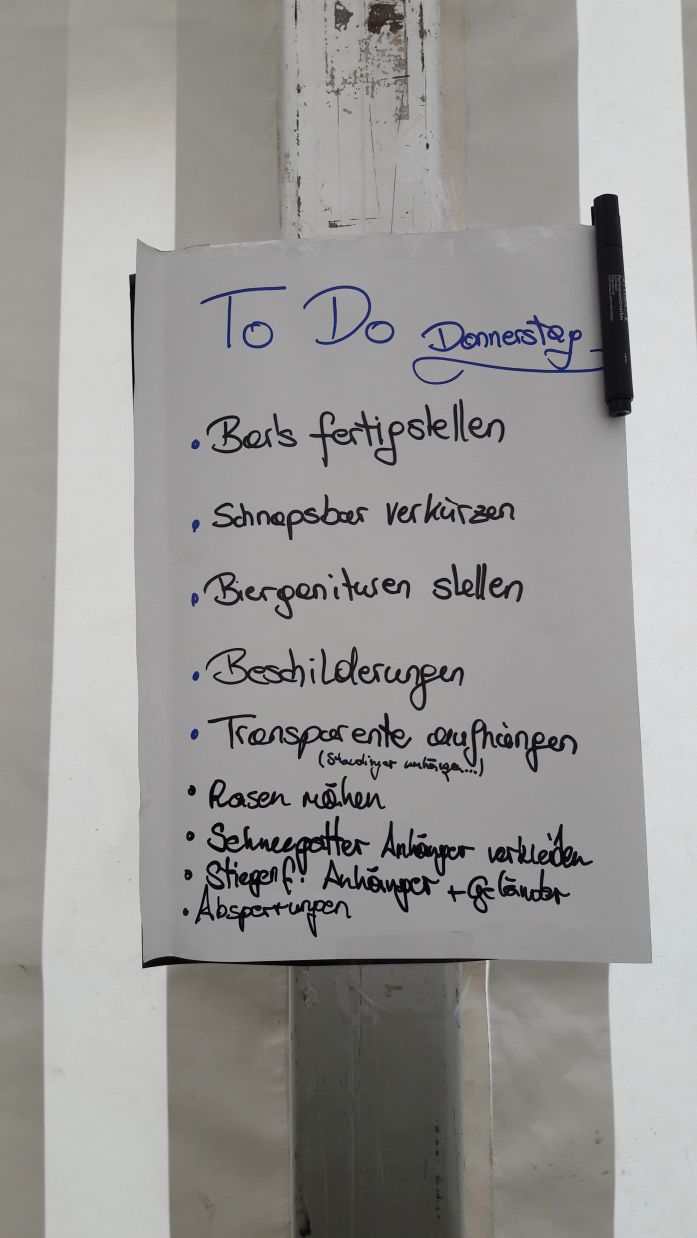 To Do Donnerstag
• Bar's fertigstellen
• Schnapsbar verkürzen
• Biergarnituren stellen
• Beschilderungen
• Transparente aufhängen
• Rasen mähen
• Schneegatter Anhänger verkleiden
• Stiegen f. Anhänger + Geländer
• Absperrungen